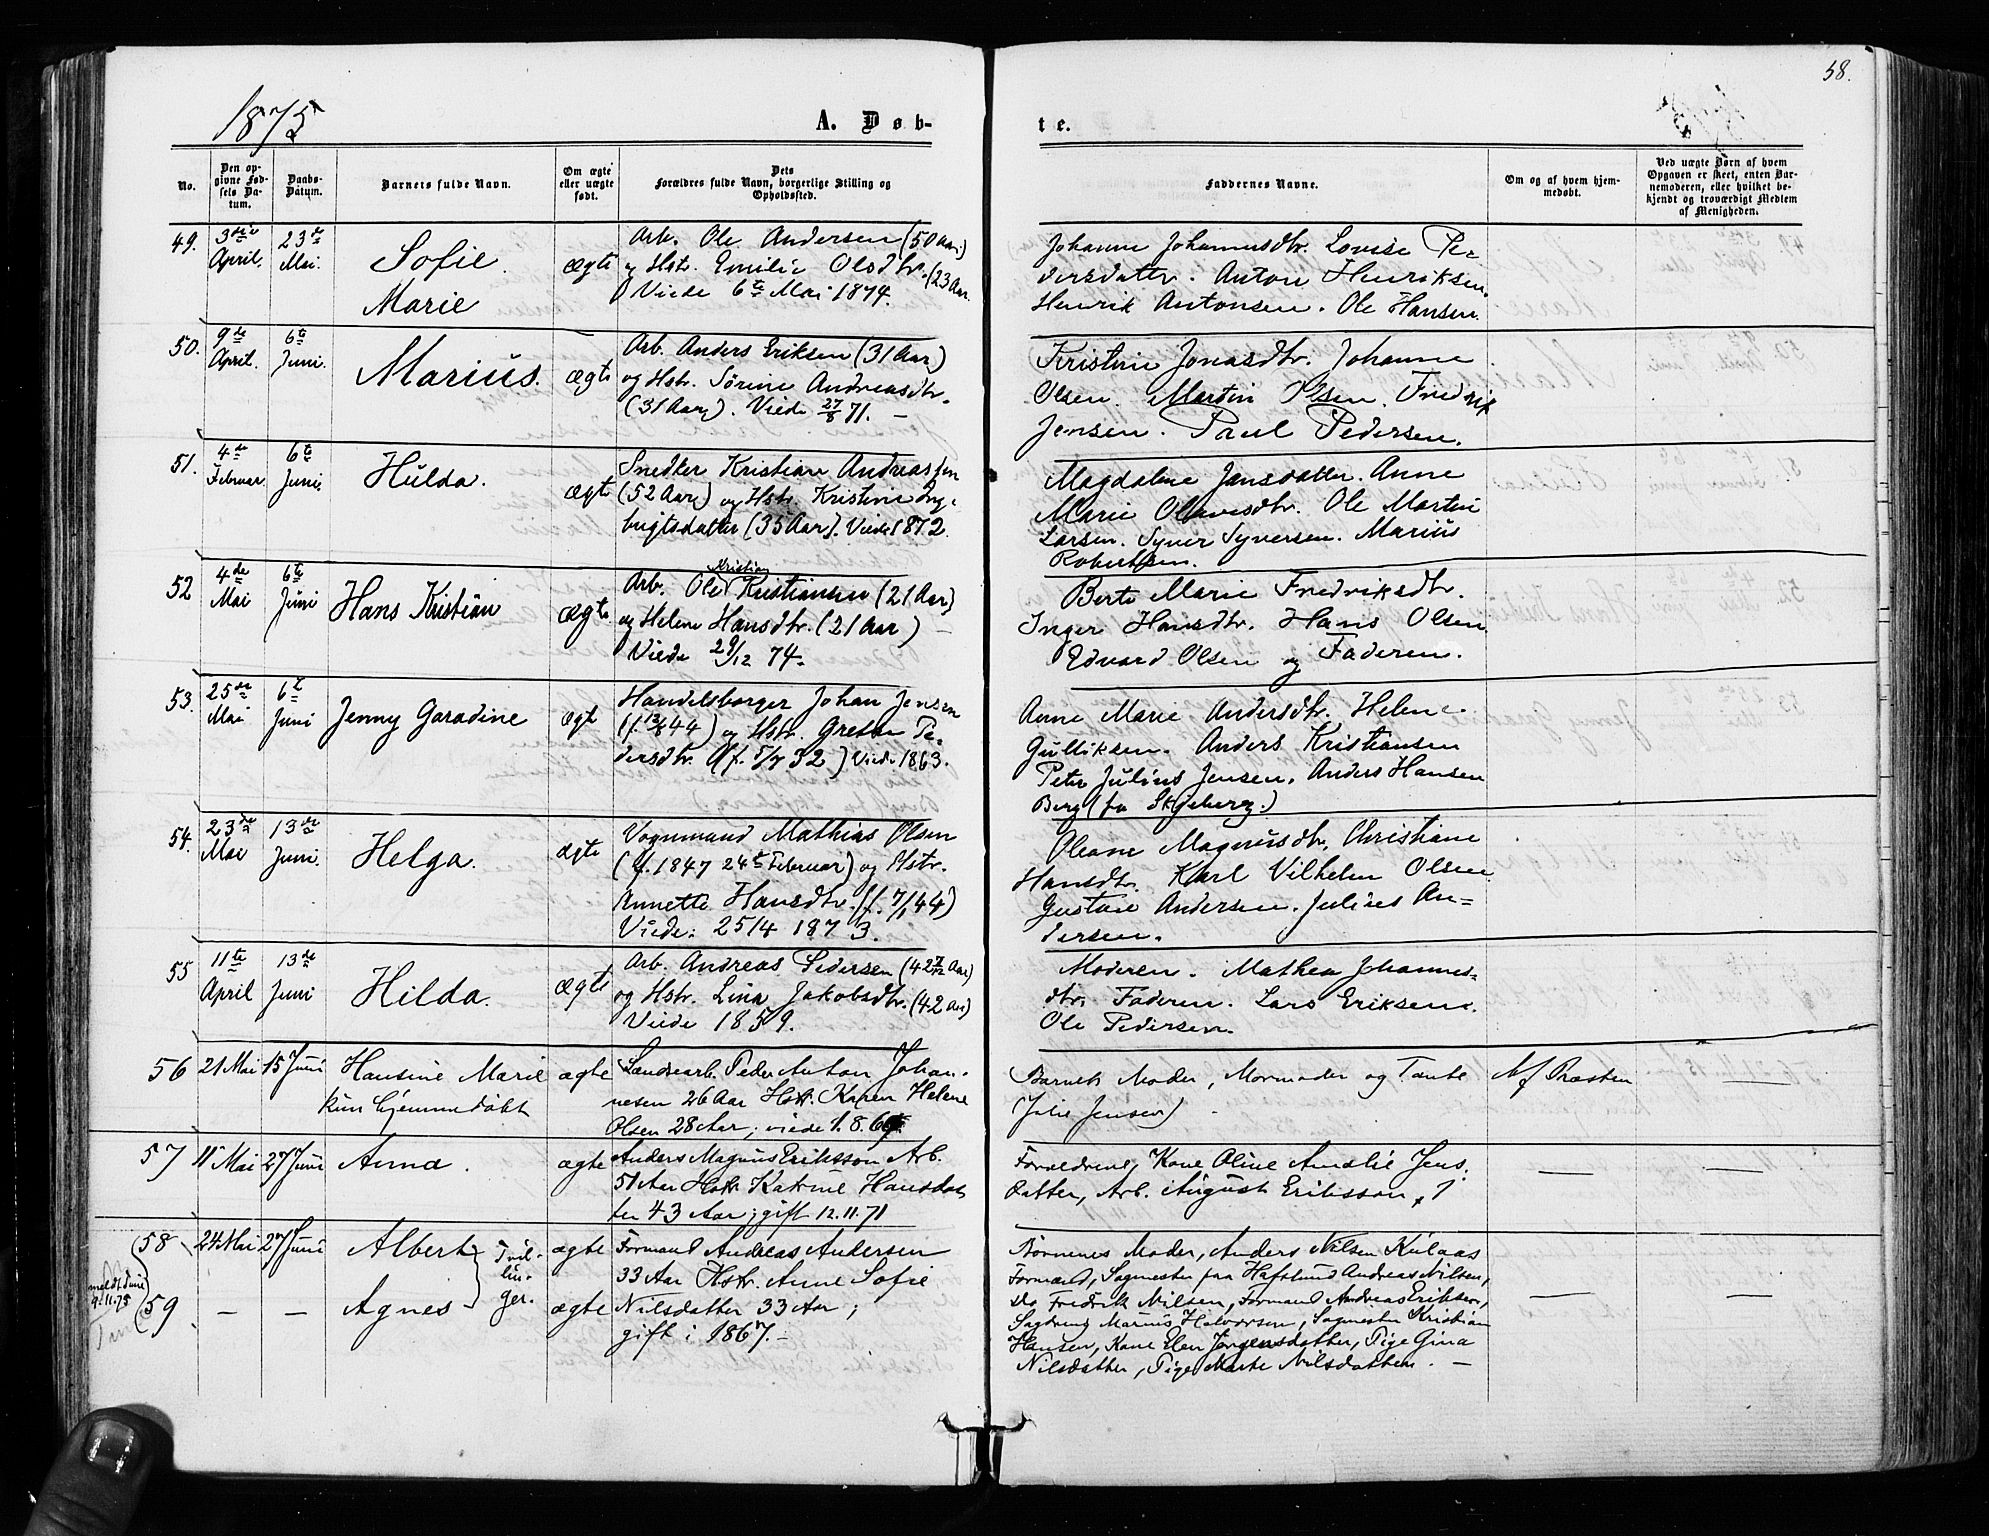 58.
1875
A. Døb-
te.
No.
Den opgivne Fødsels Datum.
Daabs-Datum.
Barnets fulde Navn.
Om ægte eller uægte født.
Dets Forældres fulde Navn, borgerlige Stilling og Opholdssted.
Faddernes Navne.
Om og af hvem hjemmedøbt.
Ved uægte Børn af hvem Opgaven er skeet, enten Barnemoderen, eller hvilket bekjendt og troværdigt Medlem af Menigheden.
49. 3die April. 23de Mai. Sofie Marie ægte
Arb. Ole Andersen (50 Aar)
og Hstr. Emilie Olsdtr. (23 Aar
Viede 6te Mai 1874.
Johanne Johannesdtr. Lovise Pe-
dersdatter. Anton Henriksen.
Henrik Antonsen. Ole Hansen.
50. 9de April. 6te Juni. Marius. ægte
Arb. Anders Eriksen (31 Aar)
og Hstr. Sørine Andreasdtr.
(31 Aar). Viede 27/8 71. –
Kristine Jonasdtr. Johanne
Olsen. Martin Olsen. Fredrik
Jensen. Paul Pedersen.
51. 4de Februar. 6te Juni. Hulda. ægte
Snedker Kristian Andreassen
(52 Aar) og Hstr. Kristine Ing-
brigtsdatter (35 Aar). Viede 1872.
Magdalene Jensdatter. Anne
Marie Olavesdtr. Ole Martin
Larsen. Syver Syversen. Marius
Robertsen.
52 4de Mai 6te Juni Hans Kristian ægte
Kristian
Arb. Ole Kristiansen (21 Aar)
og Helene Hansdtr. (21 Aar) –
Viede 29/12 74.
Berte Marie Fredriksdtr.
Inger Hansdtr. Hans Olsen.
Edvard Olsen og Faderen.
53. 25de Mai 6te Juni Jenny Garadine ægte
Handelsborger Johan Jensen
(f. 13/8 44) og Hstr. Grethe Pe-
dersdtr. (f. 5/7 32) Viede 1863.
Anne Marie Andersdtr. Helene
Gulliksen. Anders Kristiansen
Peter Julius Jensen. Anders Hansen
Berg (fra Skjeberg.)
54. 23de Mai 13de Juni. Helga. ægte
Vognmand Mathias Olsen
(f. 1847 24de Februar) og Hstr.
Annette Hansdtr. (f. 7/1 44)
Viede: 25/4 1873.
Oleane Magnusdtr. Christiane
Hansdtr. Karl Vilhelm Olsen.
Gustav Andersen. Julius An-
dersen.
55 11te April 13de Juni Hilda. ægte
Arb. Andreas Pedersen (42 7/12 Aar)
og Hstr. Lina Jakobsdtr. (42 Aar)
Viede 1859.
Moderen. Mathea Johannes-
dtr. Faderen. Lars Eriksen.
Ole Pedersen.
56 21 Mai 15 Juni Hansine Marie ægte
kun hjemmedøbt
Landsearb. Peder Anton Johan-
nesen 26 Aar Hstr. Karen Helene
Olsen 28 Aar; viede 1.8.69.
Barnets Moder, Mormoder og Tante
(Julie Jensen)
Af Præsten
57 11 Mai 27 Juni Anna. ægte
Anders Magnus Eriksson Arb.
51 Aar Hstr Katrine Hansdat-
ter 43 Aar; gift 12.11.71
Forældrene, Kone Oline Amalie Jens-
datter, Arb. August Eriksson,
58 24 Mai 27 Juni Albert ægte
59 – – Agnes ægte
Tvil-
lin-
ger.
9.11.75
Formand Andreas Andersen
33 Aar Hstr. Anne Sofie
Nilsdatter 33 Aar;
gift i 1867. –
Børnenes Moder, Anders Nilsen Kulaas
Formænd, Sagmester paa Hafslund Andreas Nilsen,
do Fredrik Nilsen, Formand Andreas Eriksen,
Sagdreng Marius Halvorsen, Sagmester Kristian
Hansen, Kone Elen Jørgensdatter, Pige Gina
Nilsdatter, Pige Marte Nilsdatter. –